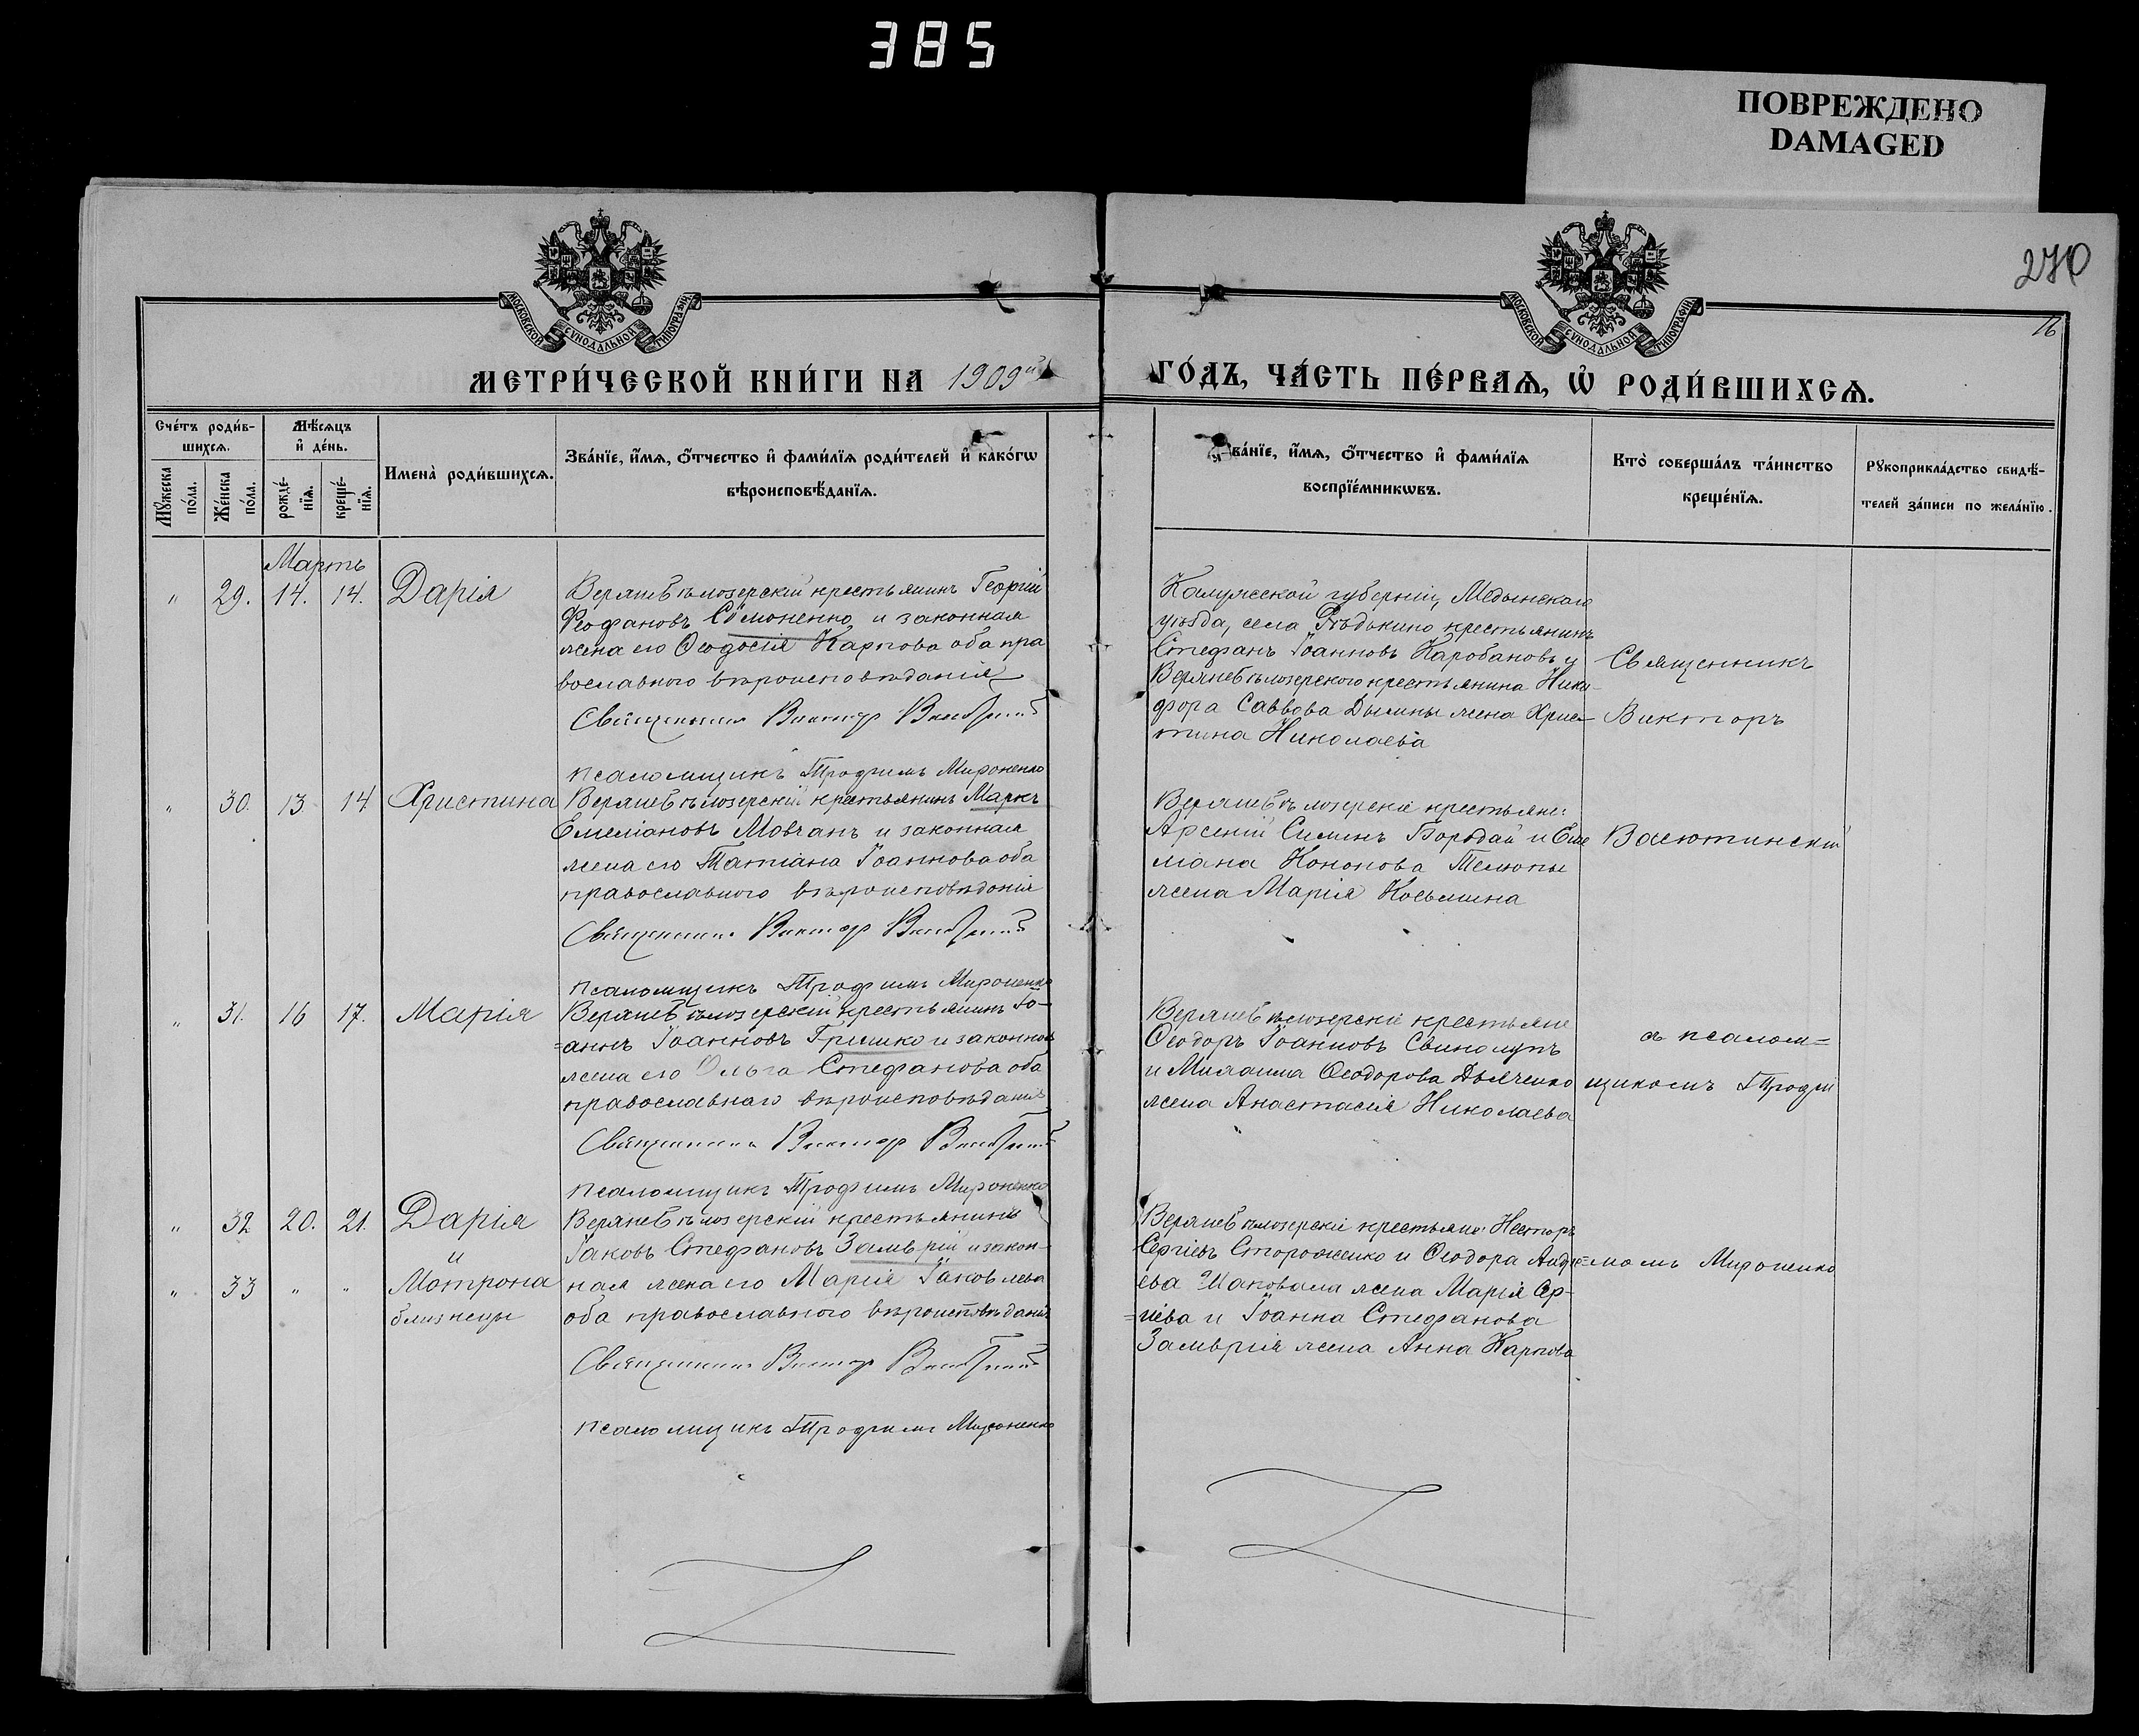 385
ПОВРЕЖДЕНО
DAMAGED
270
16
МОСКОВСКОЙ СУНОДАЛЬНОЙ ТИПОГРАФІИ
МОСКОВСКОЙ СУНОДАЛЬНОЙ ТИПОГРАФІИ
МЕТРИ́ЧЕСКОЙ КНИ́ГИ НА 1909й
ГО́ДЪ, ЧА́СТЬ ПЕ́РВАѦ, Ѡ҆ РОДИ́ВШИХСѦ.
Сче́тъ роди́в-
шихсѧ.
Мѣ́сѧцъ
и҆ де́нь.
Мꙋ́жеска
по́ла.
Же́нска
по́ла.
рожде́-
нїѧ.
креще́-
нїѧ.
Имена̀ роди́вшихсѧ.
Зва́нїе, и҆́мѧ, ѻ҆́тчество и҆ фами́лїѧ роди́телей и҆ како́гѡ
вѣроисповѣ́данїѧ.
ва́нїе, и҆́мѧ, ѻ҆́тчество и҆ фами́лїѧ
воспрїе́мникѡвъ.
Кто̀ соверша́лъ та́инство
креще́нїѧ.
Рꙋкоприкла́дство свидѣ́-
телей за́писи по жела́нїю.
Мартъ
" 29. 14. 14. Дарія
Веряневѣлозерскій крестьянинъ Георгій
Феофановъ Сѵмоненко и законная
жена его Ѳеодосія Карпова оба пра
вославнаго вѣроисповѣданія
Священникъ Викторъ
псаломщикъ Трофимъ Мироненко
Калужской губерніи, Медынскаго
уѣзда, села Рѣдькино крестьянинъ
Стефанъ Іоанновъ Каробановъ и
крестьянина Ники-
фора Саввова Дымины жена Хрис-
тина Николаева
Священникъ
Викторъ
" 30. 13 14 Христина
крестьянинъ Маркъ
Емеліановъ Мовчанъ и законная
жена его Татіана Іоаннова оба
православнаго вѣроисповѣданія
Священникъ Викторъ
псаломщикъ Трофимъ Мироненко
крестьяне:
Арсеній Симинъ Бородай и Еме
ліана Кононова Телюпы
жена Марія Косьмина
Васютинскій
" 31. 16 17. Марія
крестьянинъ Іо-
=аннъ Іоанновъ Гришко и законная
жена его Ольга Стефанова оба
православнаго вѣроисповѣданія
Священникъ Викторъ
псаломщикъ Трофимъ Мироненко
крестьяне
Ѳеодоръ Іоанновъ Свинолупъ
и Михаила Ѳеодорова Дьяченко
жена Анастасія Николаева
съ псалом=
щикомъ Трофи
" 32 20. 21. Дарія
и
" 33 " " Мотрона
близнецы
крестьянинъ
Іаковъ Стефановъ Замврій и закон-
ная жена его Марія Іаковлева
оба православнаго вѣроисповѣданія
Священникъ Викторъ
псаломщикъ Трофимъ Мироненко
крестьяне: Несторъ
Сергіевъ Стороженко и Ѳеодора Андре=
ева Шаповала жена Марія Сер-
=гіева и Іоанна Стефанова
Замврія жена Анна Карпова
=момъ Мироненко